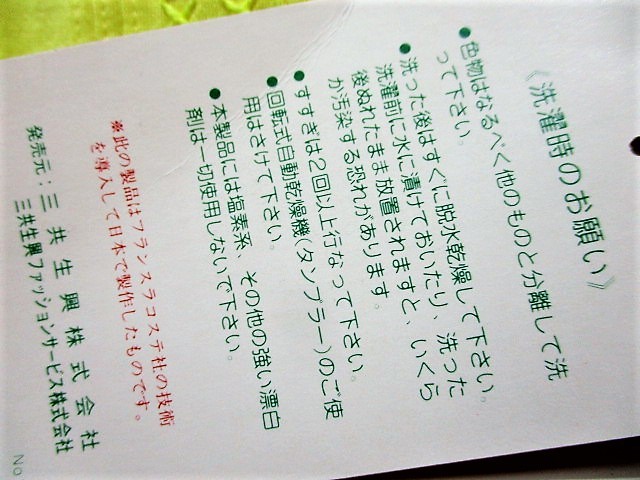 《洗濯時のお願い》
●色物はなるべく他のものと分離して洗
って下さい。
●洗った後はすぐに脱水乾燥して下さい。
洗濯前に水に漬けておいたり、洗った
後ぬれたまま放置されますと、いくら
か汚染する恐れがあります。
●すすぎは2回以上行なって下さい。
●回転式自動乾燥機(タンブラー)のご使
用はさけて下さい。
●本製品には塩素系、その他の強い漂白
剤は一切使用しないで下さい。
※此の製品はフランスラコステ社の技術
を導入して日本で製作したものです。
発売元:三共生興株式会社
三共生興ファッションサービス株式会社
No